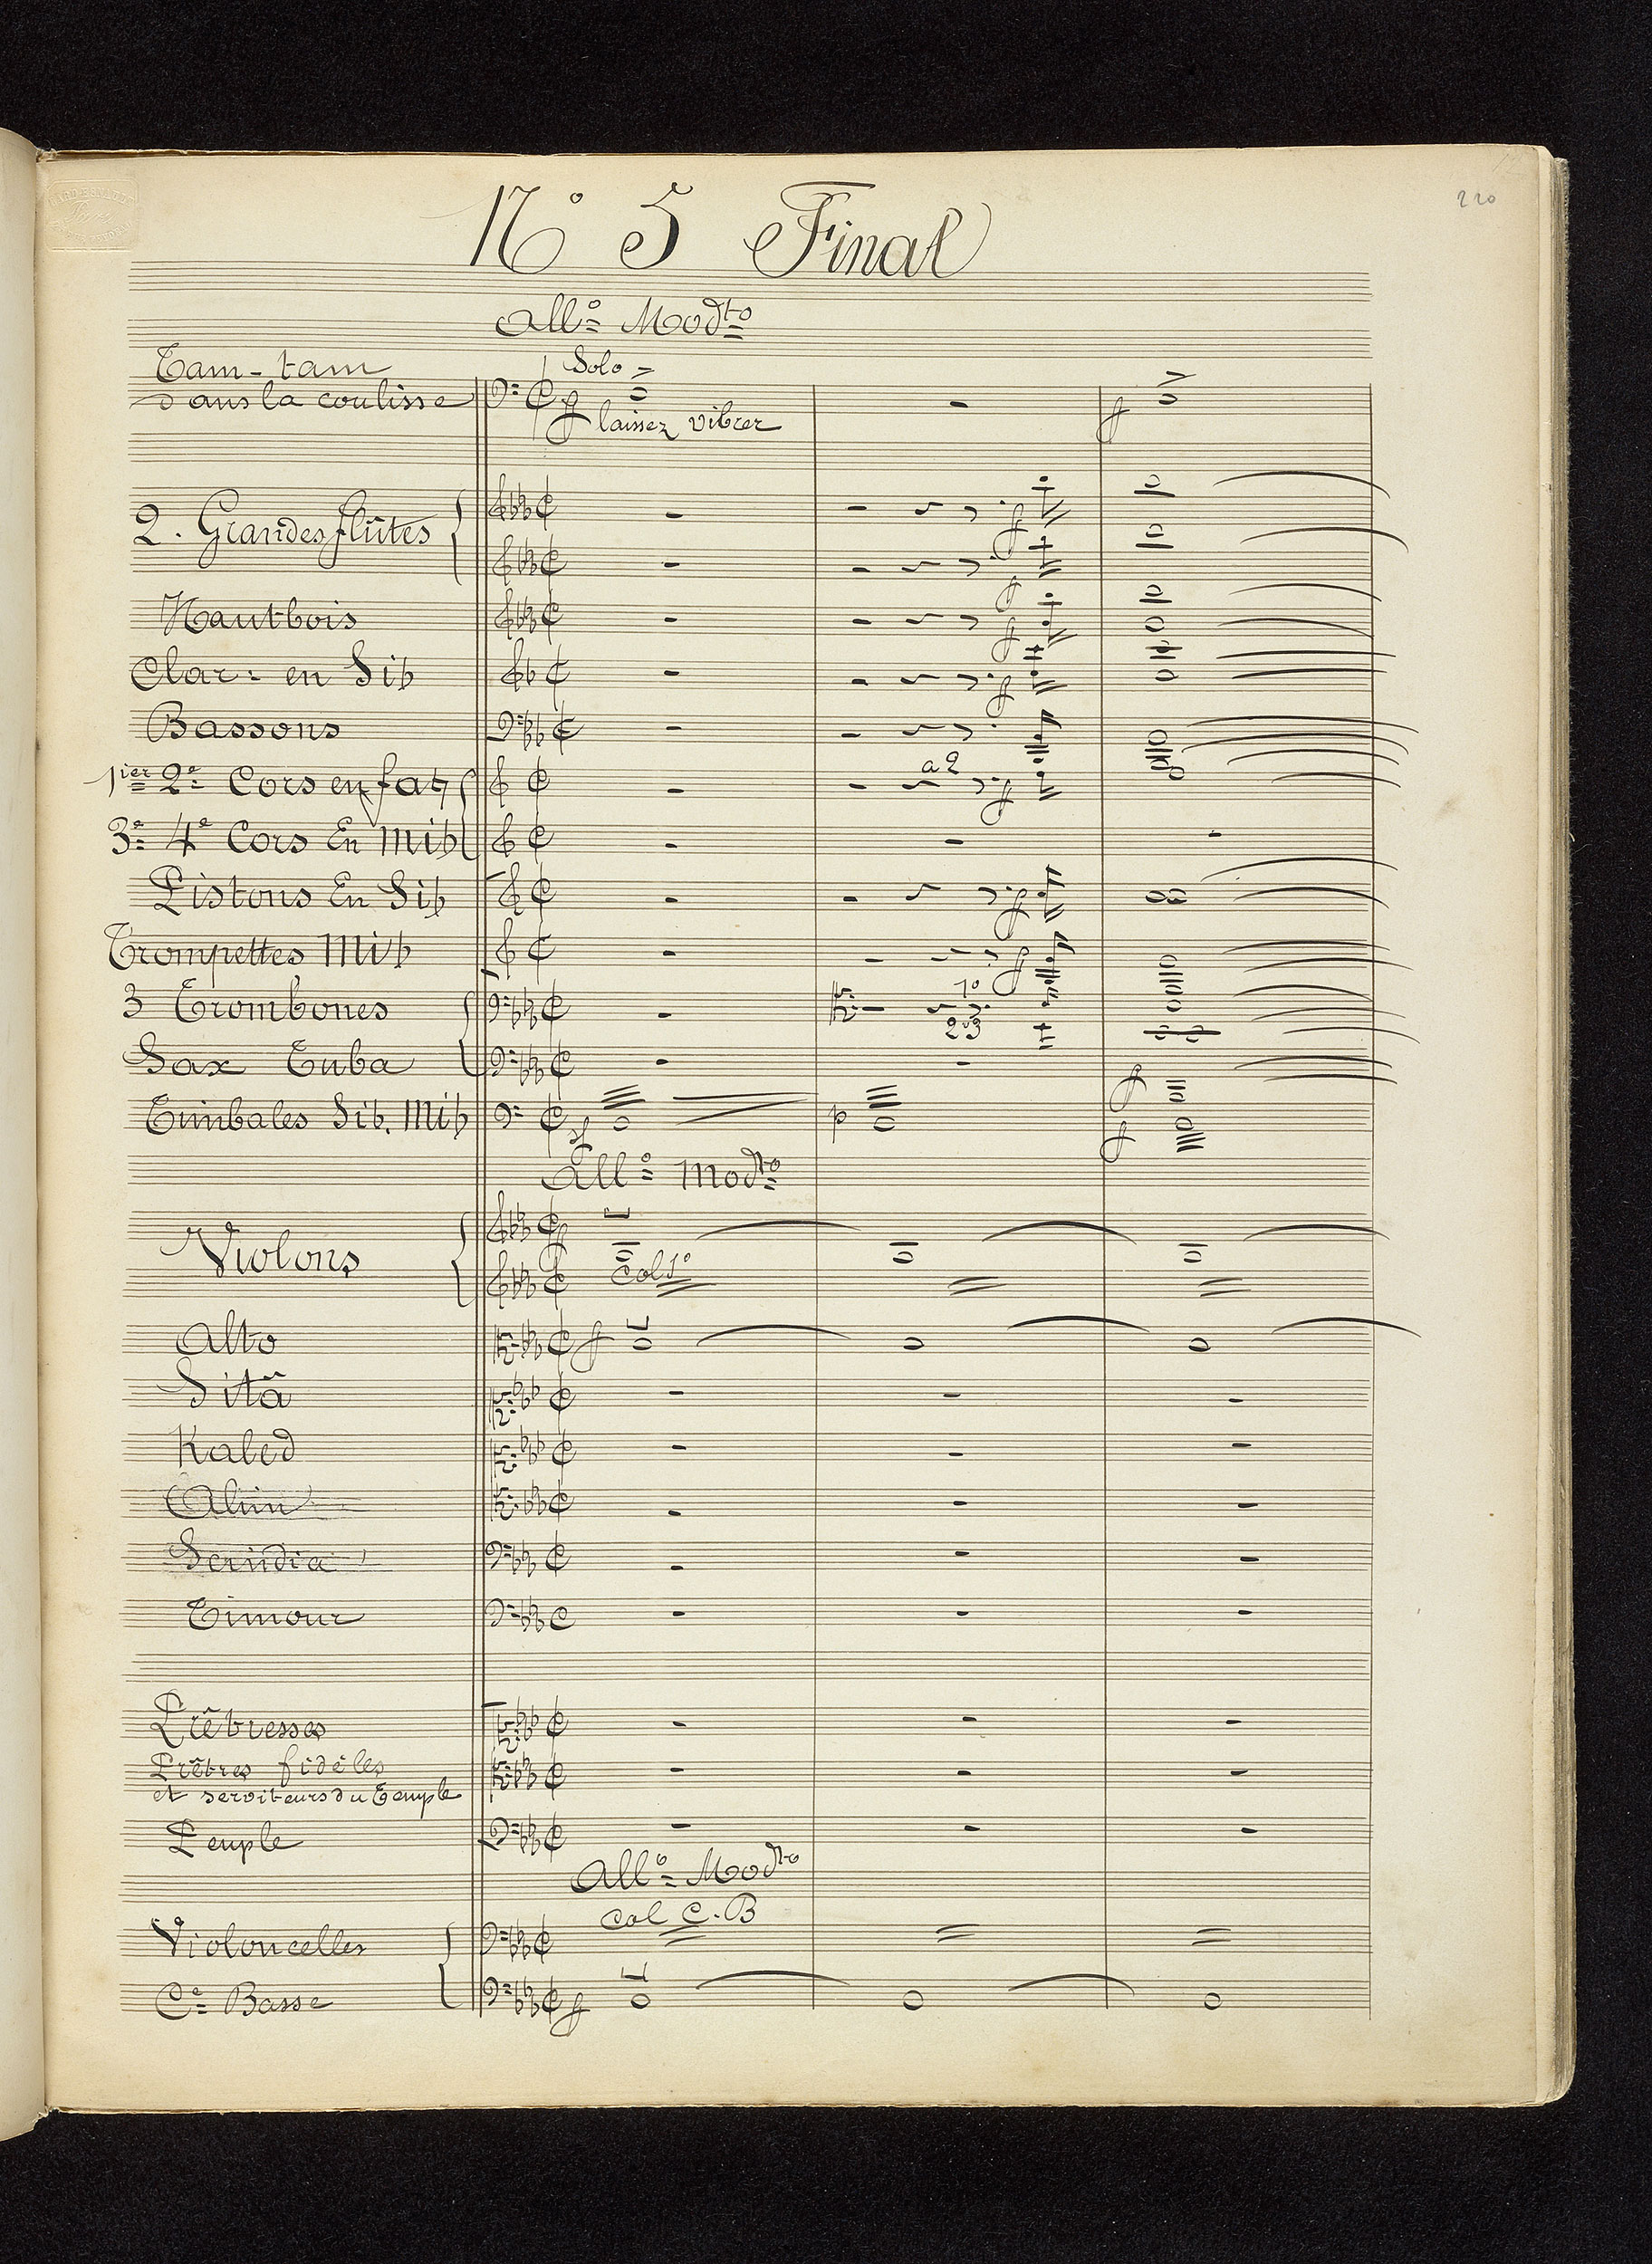 220
Nº 5 Final
Allº Modto
Tam-tam
dans la coulisse
Solo
f
laissez vibrer
f
2. Grandes flûtes
f
f
Hautbois
f
Clar: en Si♭
f
Bassons
1ier 2e Cors en fa♮
a 2
f
3e 4e Cors En Mi♭
Pistons En Si♭
f
Trompettes Mi♭
f
3 Trombones
1º
2 3
Sax Tuba
f
Timbales Si♭. Mi♭
sf
p
f
Allº Modto
Violons
f
col 1º
Alto
f
Sitâ
Kaled
Alim
Scindia
Timour
Prêtresses
Prêtres fidèles
et serviteurs du Temple
Peuple
Allº Modto
col C.B
Violoncelles
Ce Basse
f